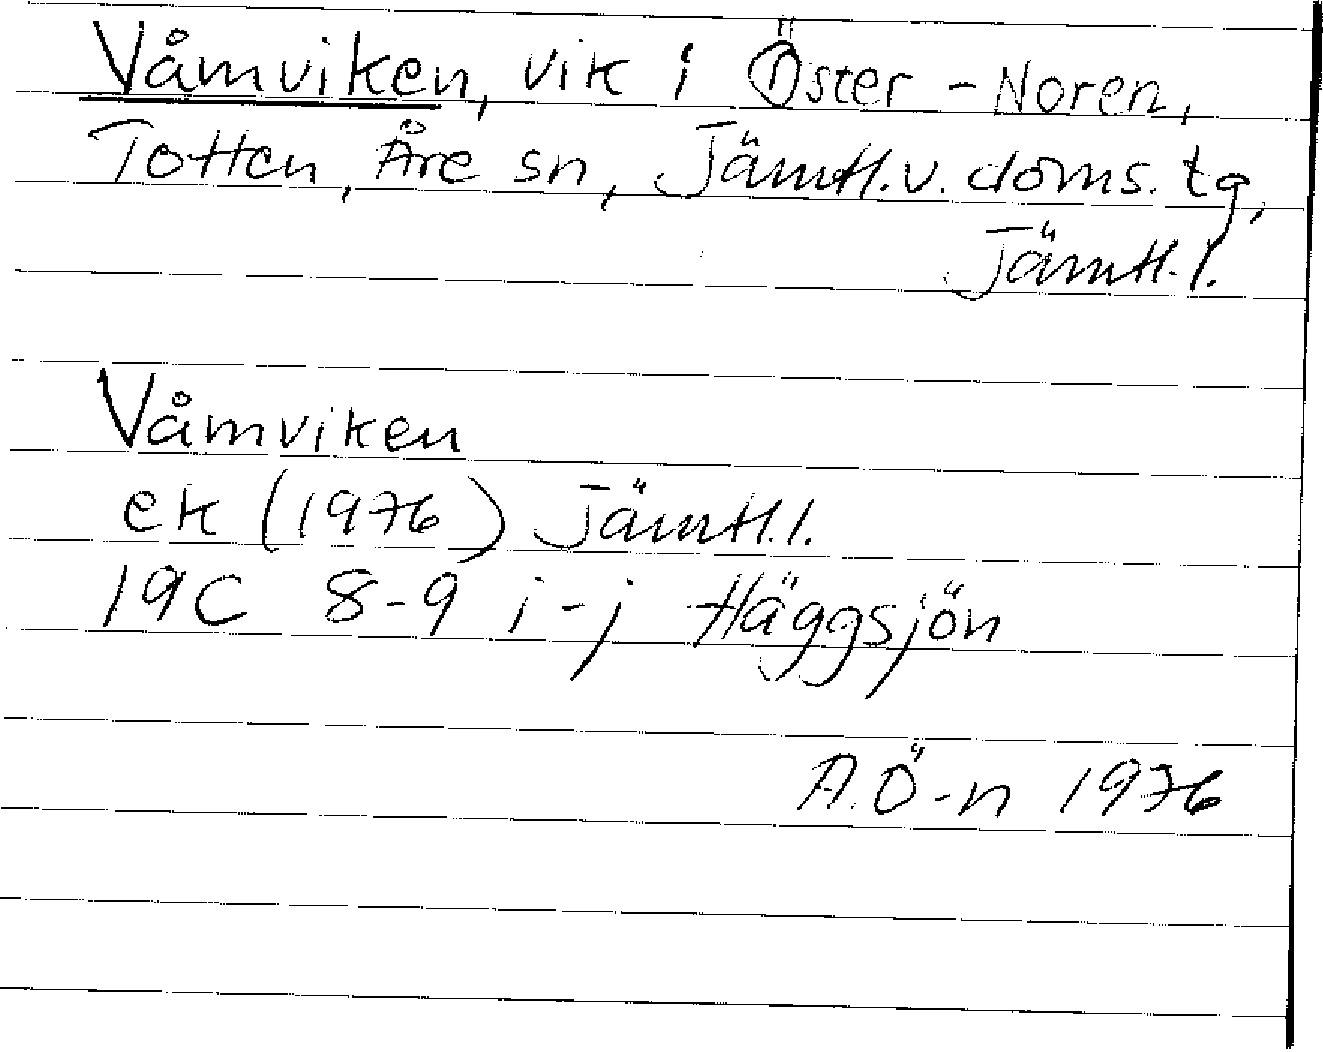 Våmviken, vik i Öster-Noren,
Totten, Åre sn, Jämtl.v. doms. tg,
Jämtl.l.
Våmviken
ek (1976) Jämtl.l.
19C 8-9 i-j Häggsjön
A.Ö-n 1976